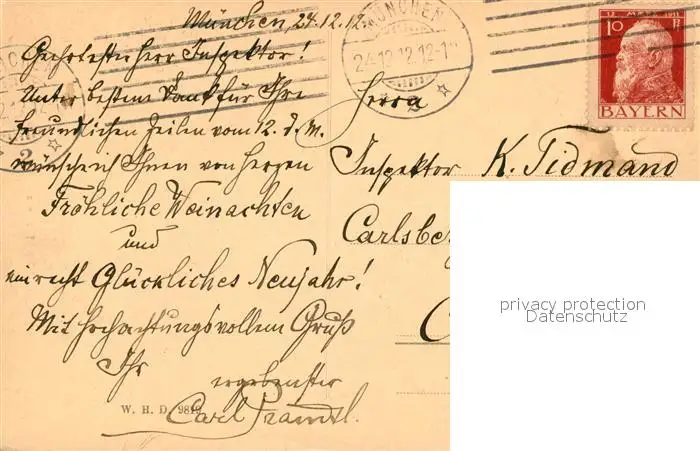 München, 24.12.12.
Geehrtester Herr Inspektor!
Unter bestem Dank für Ihre
freundlichen Zeilen vom 12. d. M.
wünsche ich Ihnen von Herzen
Fröhliche Weinachten
und
ein recht Glückliches Neujahr!
Mit hochachtungsvollem Gruß
Ihr ergebenster
Carl Prandtl.
W. H. D. 98
MÜNCHEN
24.12.12.12-1
2
12 MÄRZ 1911
10 Pf
BAYERN
Herrn
Inspektor K. Tidmand
Carlsber
privacy protection
Datenschutz